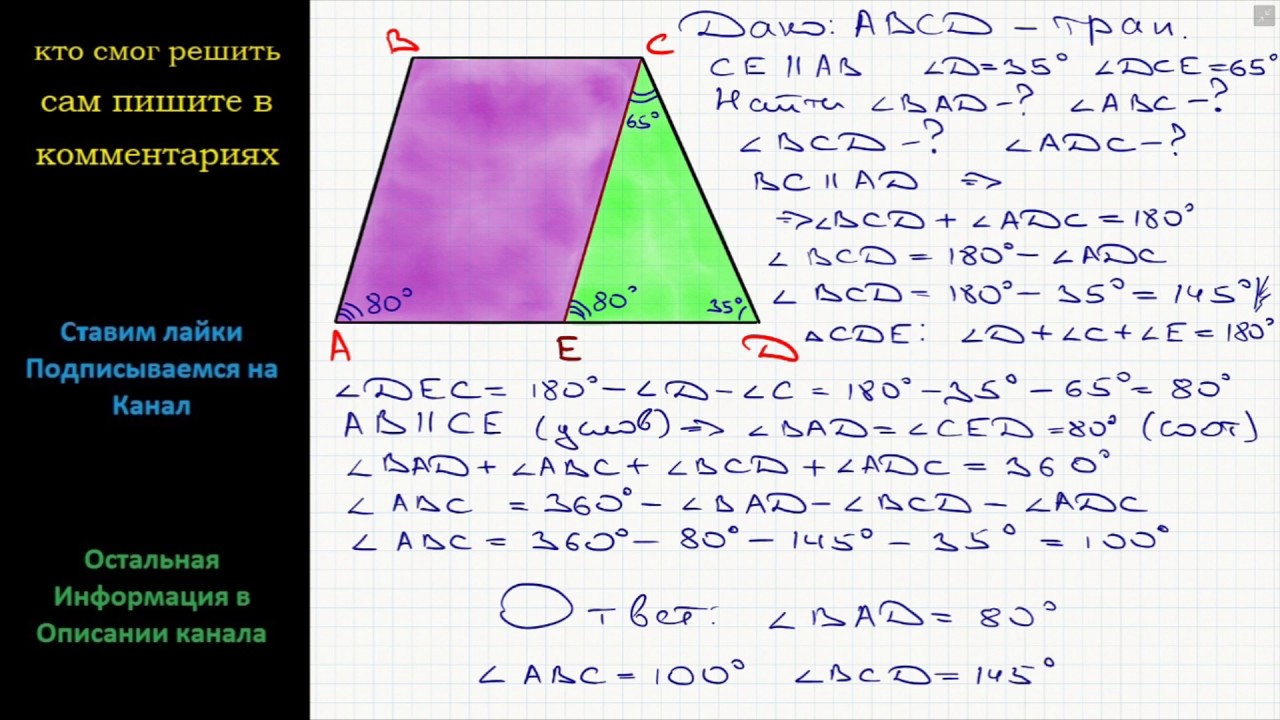 кто смог решить
сам пишите в
комментариях
Ставим лайки
Подписываемся на
Канал
Остальная
Информация в
Описании канала
B
C
65°
80°
80°
35°
A
E
D
Дано: ABCD – трап.
CE || AB ∠D=35° ∠DCE=65°
Найти ∠BAD-? ∠ABC-?
∠BCD-? ∠ADC-?
BC || AD ⇒
⇒∠BCD + ∠ADC = 180°
∠BCD = 180° - ∠ADC
∠BCD = 180° - 35° = 145°
△CDE: ∠D+∠C+∠E=180°
∠DEC = 180° - ∠D - ∠C = 180° - 35° - 65° = 80°
AB || CE (услов) ⇒ ∠BAD = ∠CED = 80° (соот)
∠BAD + ∠ABC + ∠BCD + ∠ADC = 360°
∠ABC = 360° - ∠BAD - ∠BCD - ∠ADC
∠ABC = 360° - 80° - 145° - 35° = 100°
Ответ: ∠BAD = 80°
∠ABC = 100° ∠BCD = 145°